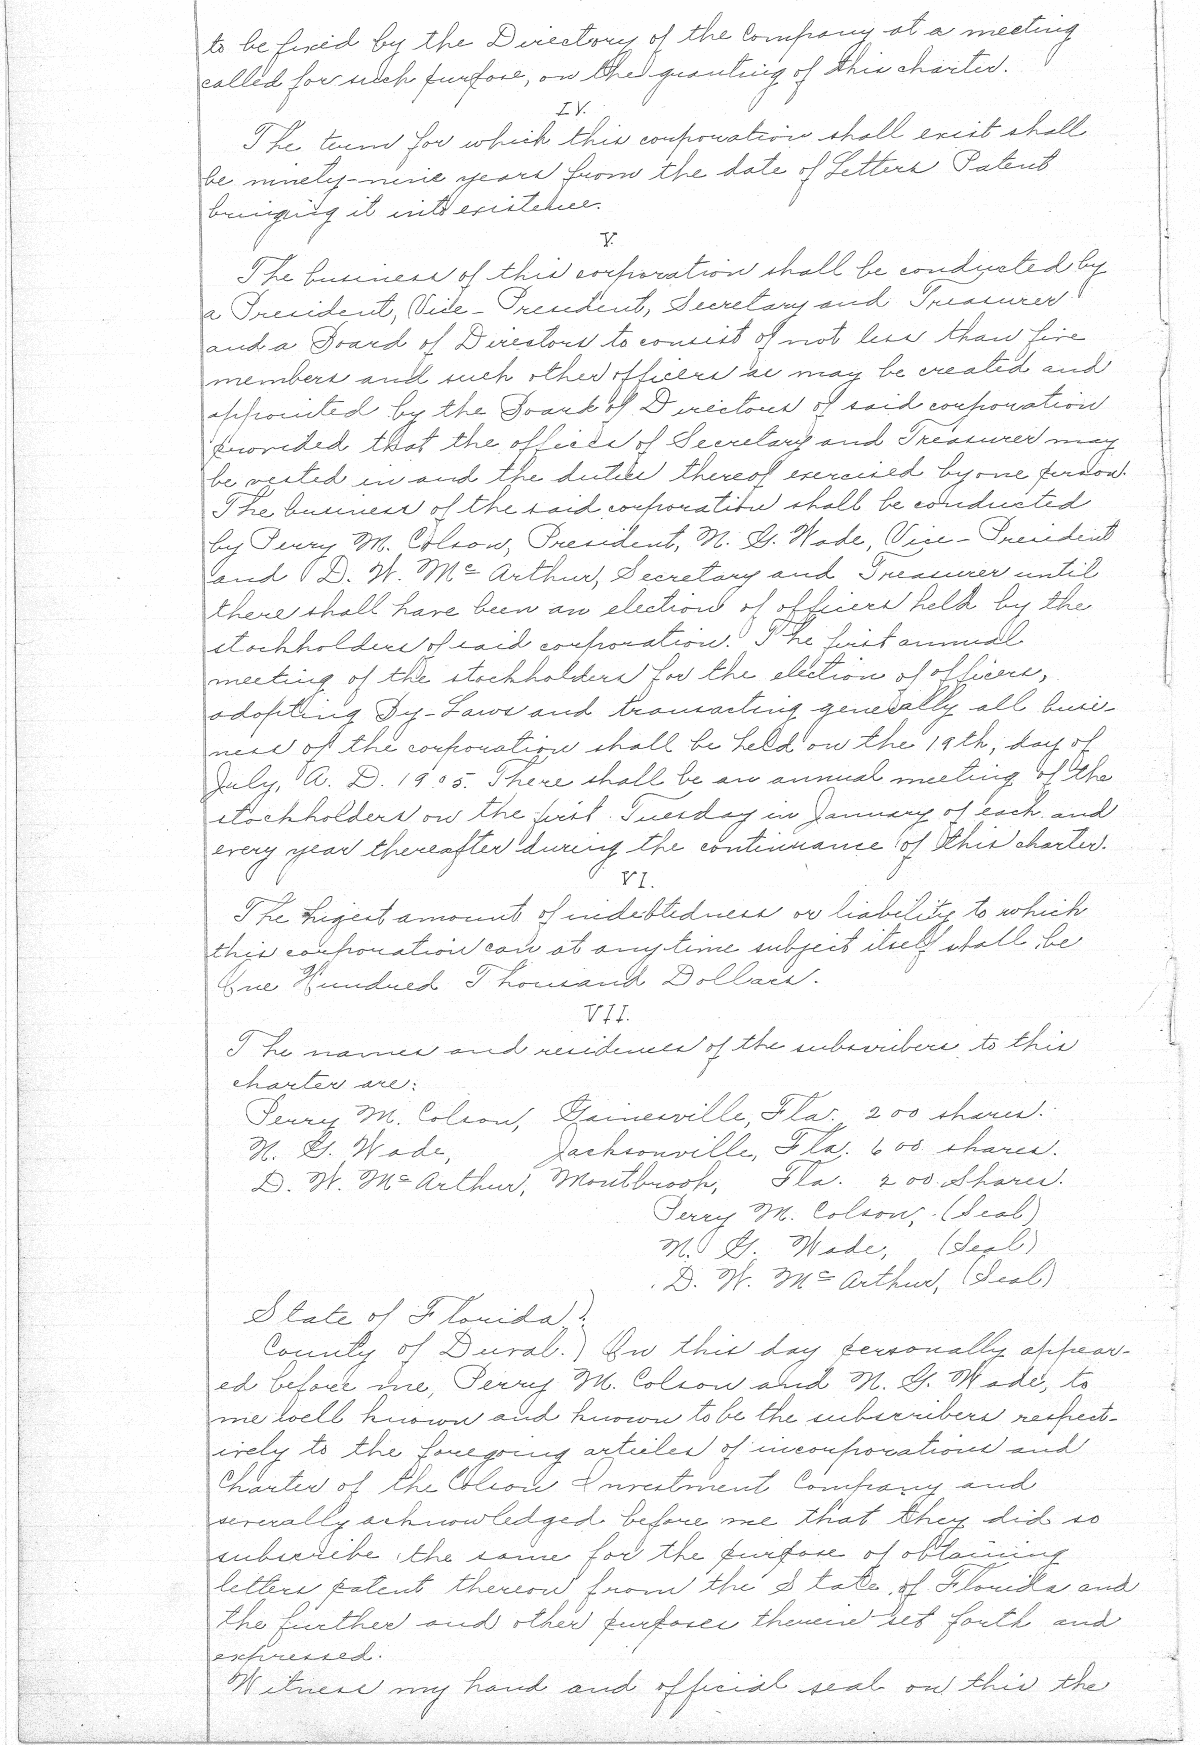 to be fixed by the Directory of the Company at a meeting
called for such purpose, on the granting of this charter.
IV.
The term for which this corporation shall exist shall
be ninety-nine years from the date of Letters Patent
bringing it into existence.
V.
The business of this corporation shall be conducted by
a President, Vice-President, Secretary and Treasurer
and a Board of Directors to consist of not less than five
members and such other officers as may be created and
appointed by the Board of Directors of said corporation
provided that the offices of Secretary and Treasurer may
be vested in and the duties thereof exercised by one person.
The business of the said corporation shall be conducted
by Perry M. Colson, President, N. G. Wade, Vice-President
and D. W. McArthur, Secretary and Treasurer until
there shall have been an election of officers held by the
stockholders of said corporation. The first annual
meeting of the stockholders for the election of officers,
adopting By-Laws and transacting generally all busi-
ness of the corporation shall be held on the 19th, day of
July, A. D. 1905. There shall be an annual meeting of the
stockholders on the first Tuesday in January of each and
every year thereafter during the continuance of this charter.
VI.
The higest amount of indebtedness or liability to which
this corporation can at any time subject itself shall be
One Hundred Thousand Dollars.
VII.
The names and residences of the subscribers to this
charter are:
Perry M. Colson, Gainesville, Fla. 200 shares.
N. G. Wade, Jacksonville, Fla. 600 shares.
D. W. McArthur, Montbrook, Fla. 200 Shares.
Perry M. Colson, (Seal)
N. G. Wade, (Seal)
D. W. McArthur, (Seal)
State of Florida )
County of Duval. ) On this day personally appear-
ed before me, Perry M. Colson and N. G. Wade, to
me well known and known to be the subscribers respect-
ively to the foregoing articles of incorporations and
Charter of the Colson Investment Company and
severally acknowledged before me that they did so
subscribe the same for the purpose of obtaining
letters patent thereon from the State of Florida and
the further and other purposes therein set forth and
expressed.
Witness my hand and official seal on this the